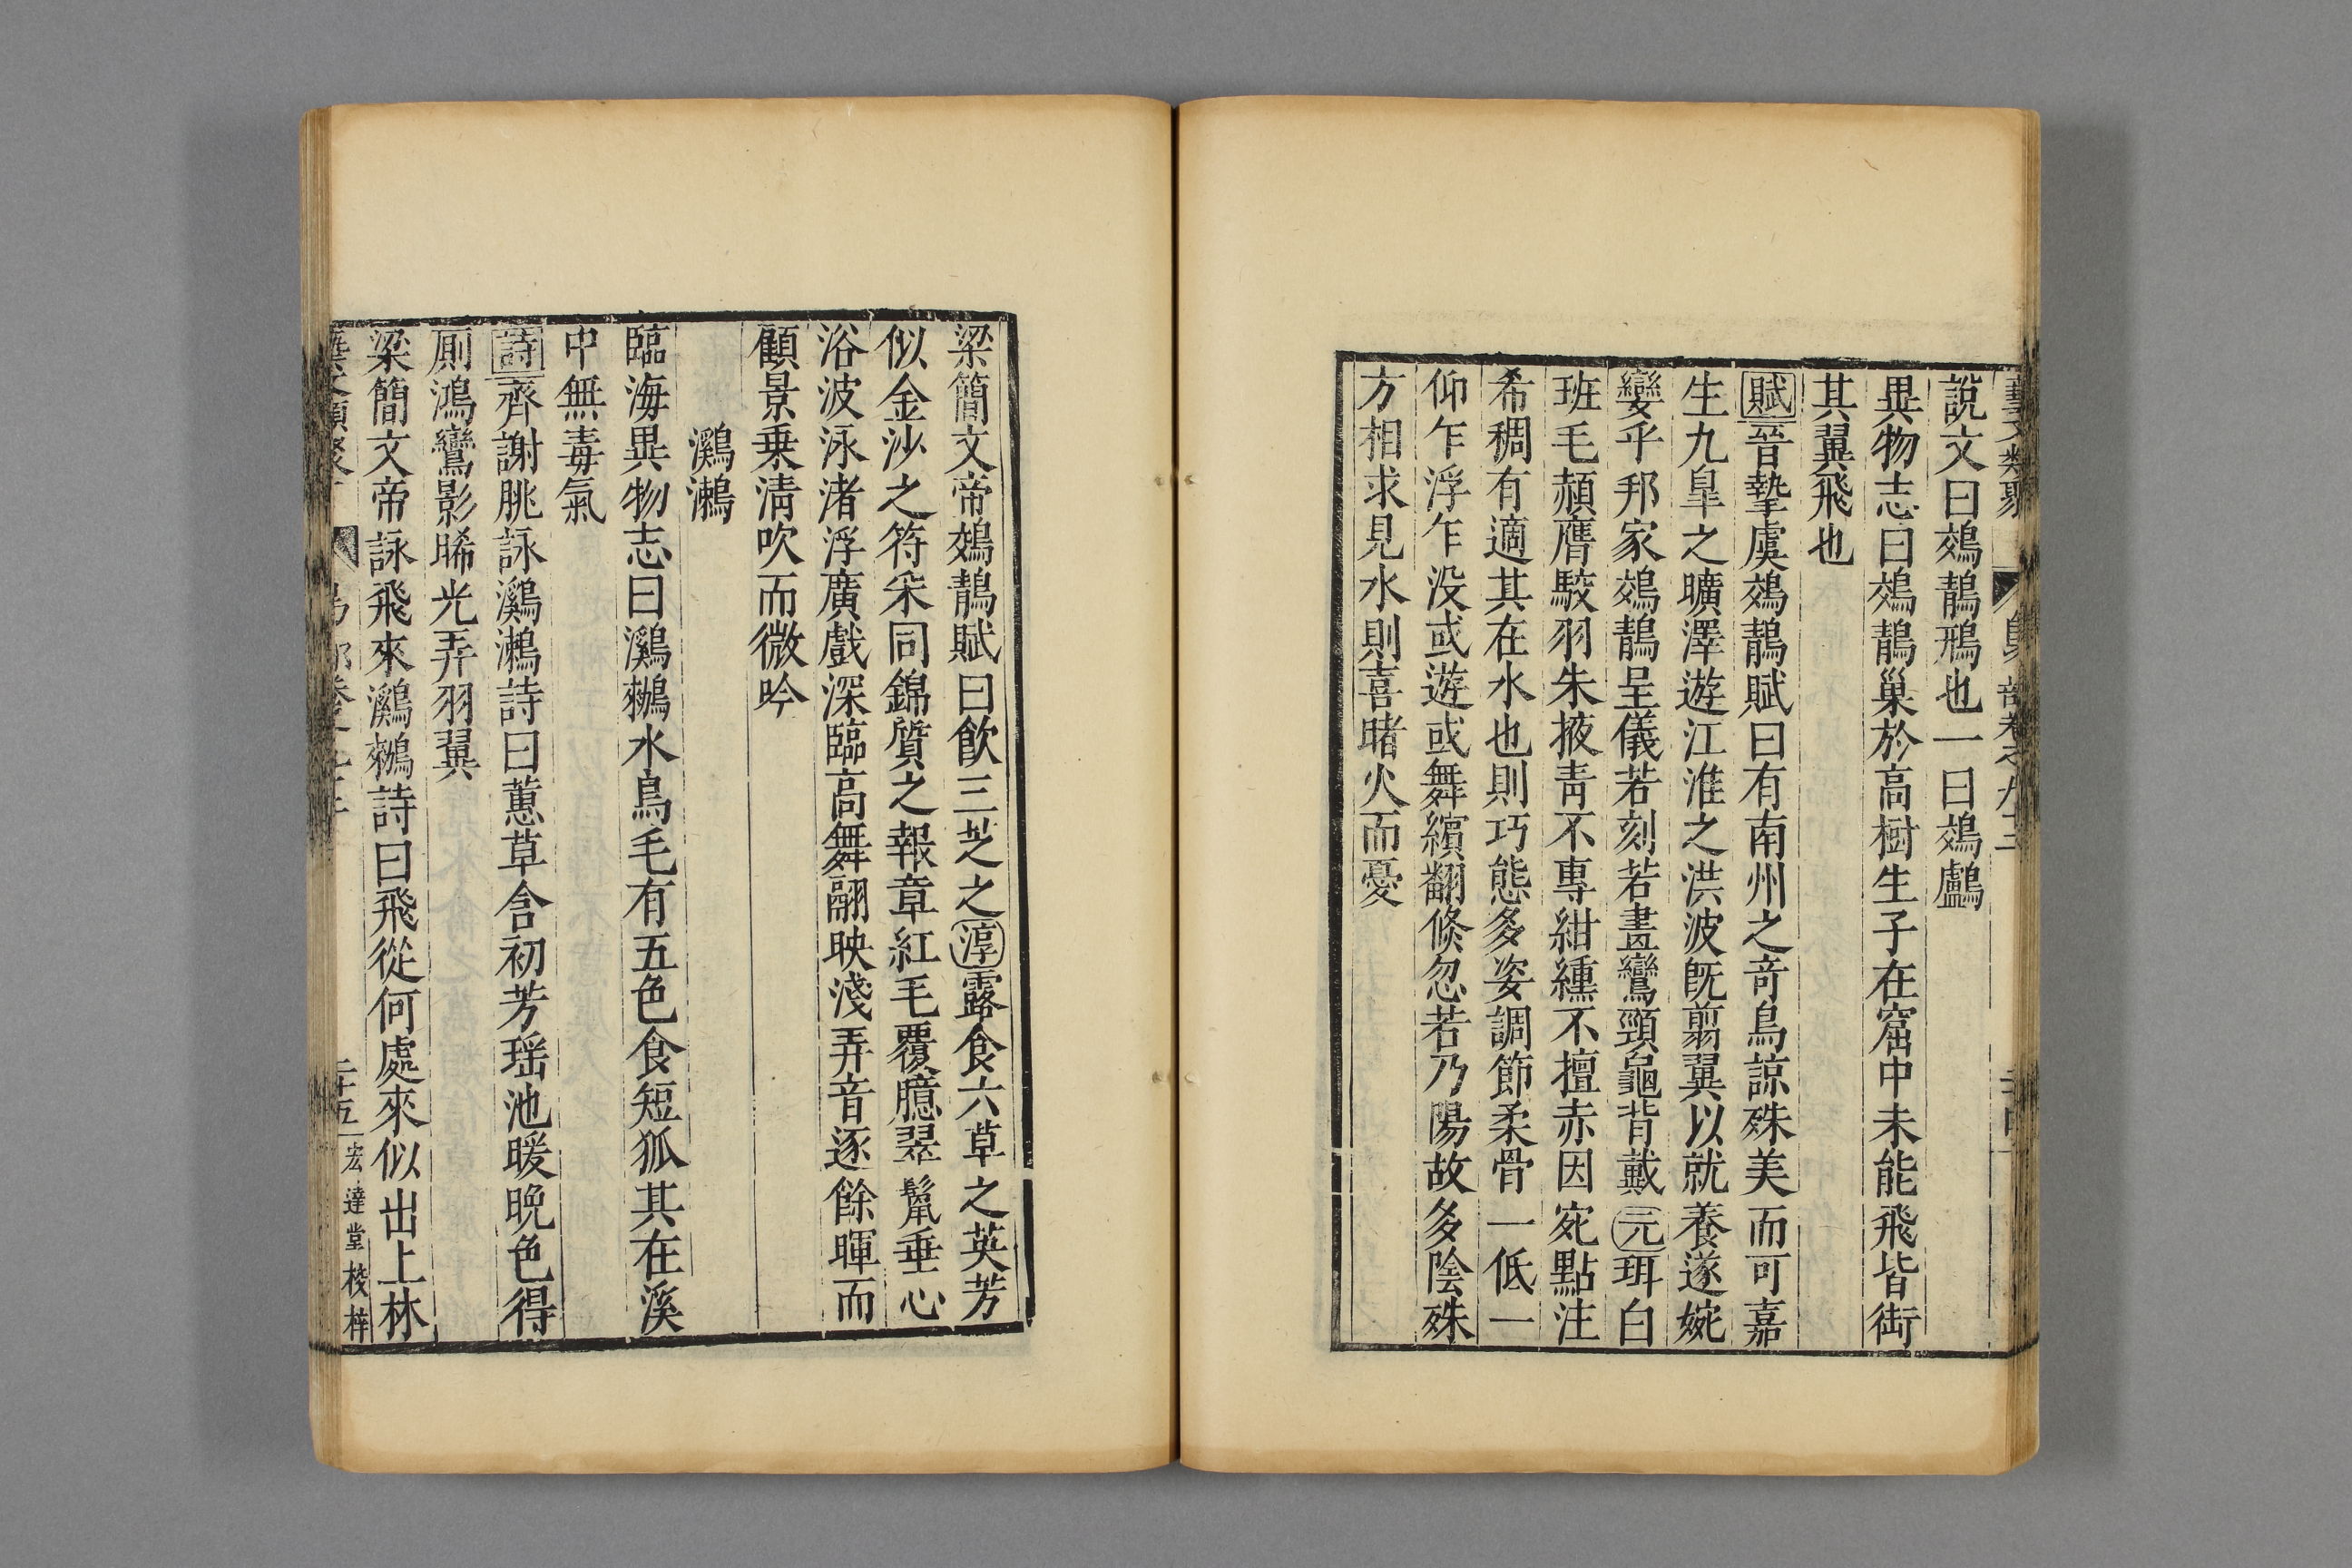 藝文類聚 鳥部卷之九十二
說文曰鵁鶄鳽也一曰鵁鸕
異物志曰鵁鶄巢於高樹生子在窟中未能飛皆銜
其翼飛也
賦晉摯虞鵁鶄賦曰有南州之奇鳥諒殊美而可嘉
生九皐之曠澤遊江淮之洪波旣剪翼以就養遂婉
孌乎邦家鵁鶄呈儀若刻若畫鸞頸龜背戴元珥白
班毛頳膺駮羽朱掖靑不專紺纁不擅赤因宛點注
希稠有適其在水也則巧態多姿調節柔骨一低一
仰乍浮乍没或遊或舞繽翻倏忽若乃陽故多陰殊
方相求見水則喜睹火而憂
梁簡文帝鵁鶄賦曰飲三芝之淳露食六草之英芳
似金沙之符采同錦質之報章紅毛覆臆翠鬣垂心
浴波泳渚浮廣戲深臨高舞翮映淺弄音逐餘暉而
顧景乗淸吹而微吟
鸂鶒
臨海異物志曰鸂鶒水鳥毛有五色食短狐其在溪
中無毒氣
詩齊謝朓詠鸂鶒詩曰蕙草含初芳瑶池暖晚色得
厠鴻鸞影晞光弄羽翼
梁簡文帝詠飛來鸂鶒詩曰飛從何處來似出上林
二十五 宏達堂校梓